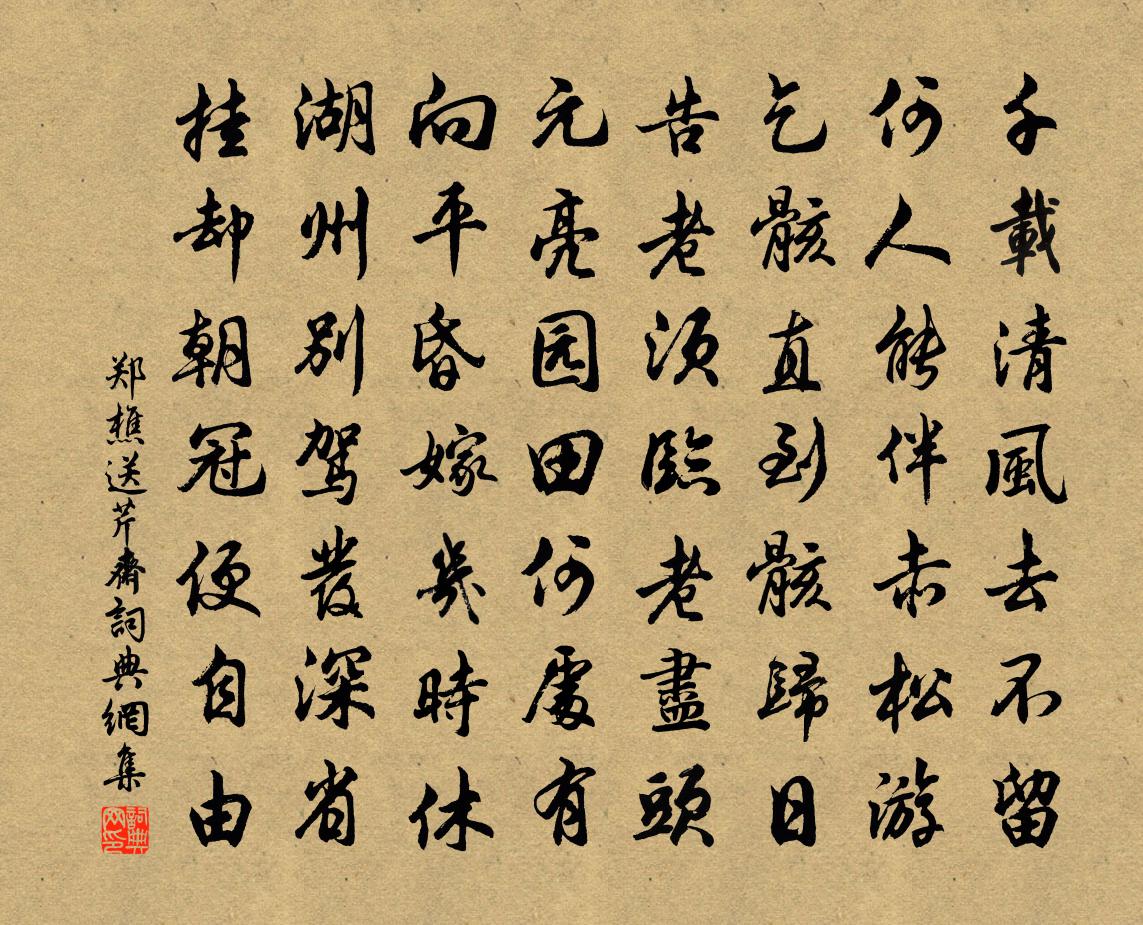 千載清風去不留
何人能伴赤松游
乞骸直到骸歸日
告老須臨老盡頭
元亮园田何處有
向平昏嫁幾時休
湖州別駕發深省
挂却朝冠便自由
郑樵送芹齋詞典網集
詞典網印